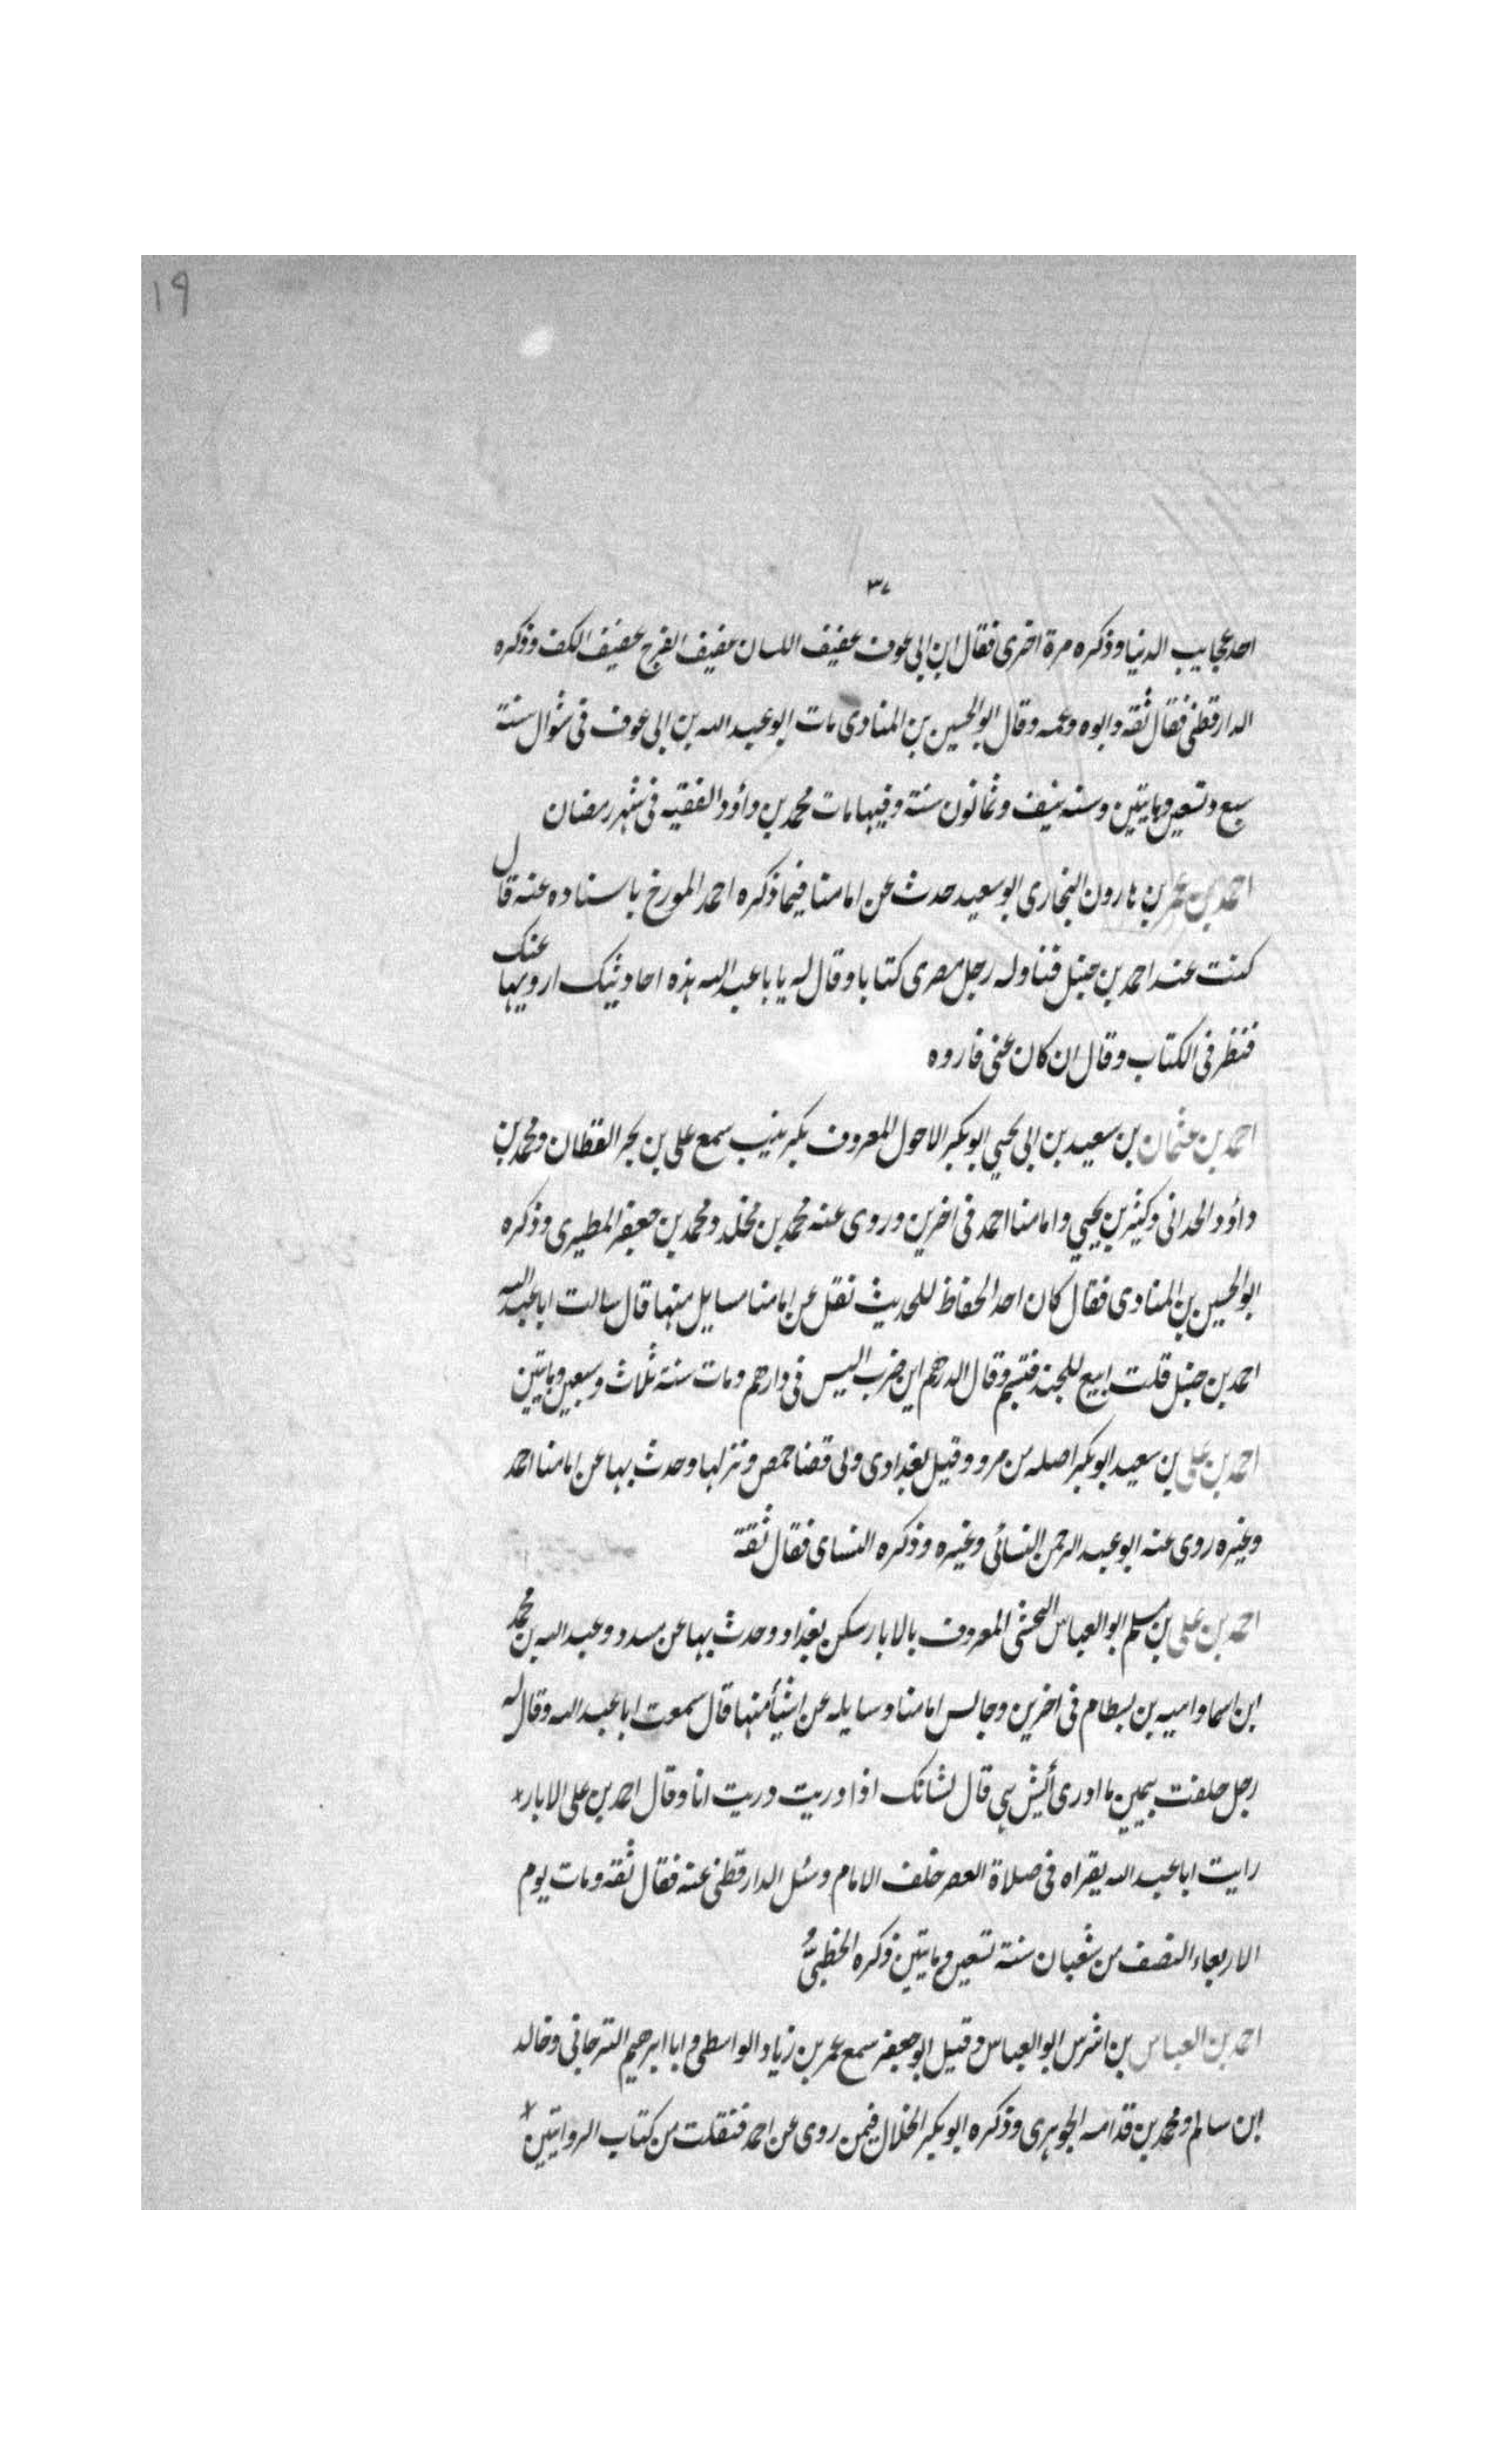 ١٩
٣٧
احد عجايب الدنيا وذكره مرة اخرى فقال ابن ابى عوف عفيف اللسان عفيف الفرج عفيف الكف وذكره
الدارقطنى فقال ثقه وابوه وعمه وقال ابو الحسين بن المنادى مات ابو عبد الله بن ابى عوف فى شوال سنة
سبع وتسعين ومايتين وسنه نيف وثمانون سنة وفيها مات محمد بن داؤد الفقيه فى شهر رمضان
احمد بن عمر بن هارون البخارى ابو سعيد حدث عن امامنا فيما ذكره احمد المورخ باسناده عنه قال
كنت عند احمد بن حنبل فناوله رجل مصرى كتابا وقال له يا با عبد الله هذه احاديثك ارويها عنك
فنظر فى الكتاب وقال ان كان عنى فاروه
احمد بن عثمان بن سعيد بن ابى يحيى ابو بكر الاحول المعروف بكرنيب سمع على بن بحر القطان ومحمد بن
داؤد الحدانى وكثير بن يحيى وامامنا احمد فى اخرين وروى عنه محمد بن مخلد ومحمد بن جعفر المطيرى وذكره
ابو الحسين بن المنادى فقال كان احد الحفاظ للحديث نقل عن امامنا مسايل منها قال سالت ابا عبد الله
احمد بن حنبل قلت ابيع للجند فتبسم وقال الدرهم اين ضرب اليس فى دارهم ومات سنة ثلاث وسبعين ومايتين
احمد بن على بن سعيد ابو بكر اصله من مرو وقيل بغدادى ولى قضا حمص ونزلها وحدث بها عن امامنا احمد
وغيره روى عنه ابو عبد الرحمن النسائى وغيره وذكره النساى فقال ثقة
احمد بن على بن مسلم ابو العباس النخشى المعروف بالابار سكن بغداد وحدث بها عن مسدد وعبد الله بن محمد
ابن اسما واميه بن بسطام فى اخرين وجالس امامنا وسايله عن اشيأ منها قال سمعت ابا عبد الله وقال له
رجل حلفت بيمين ما ادرى أيش هى قال لشانك اذا دريت دريت انا وقال احمد بن على الابار
رايت ابا عبد الله يقراه فى صلاة العصر خلف الامام وسئل الدارقطنى عنه فقال ثقه ومات يوم
الاربعاء النصف من شعبان سنة تسعين ومايتين ذكره الخطبىُّ
احمد بن العباس بن اشرس ابو العباس وقيل ابو جعفر سمع عمر بن زياد الواسطى وابا ابرهيم الترجانى وخالد
ابن سالم ومحمد بن قدامه الجوهرى وذكره ابو بكر الخلال فيمن روى عن احمد فنقلت من كتاب الروايتين